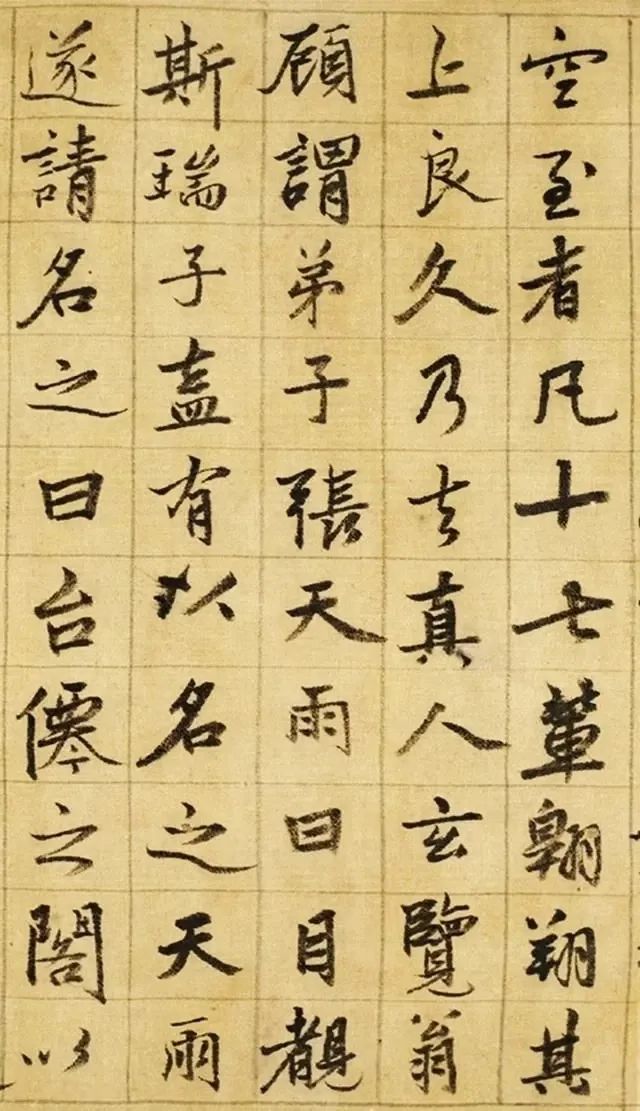 空至者凡十七輩翱翔其
上良久乃去真人玄覽翁
顧謂弟子張天雨曰目覩
斯瑞子盍有以名之天雨
遂請名之曰台僊之閣以